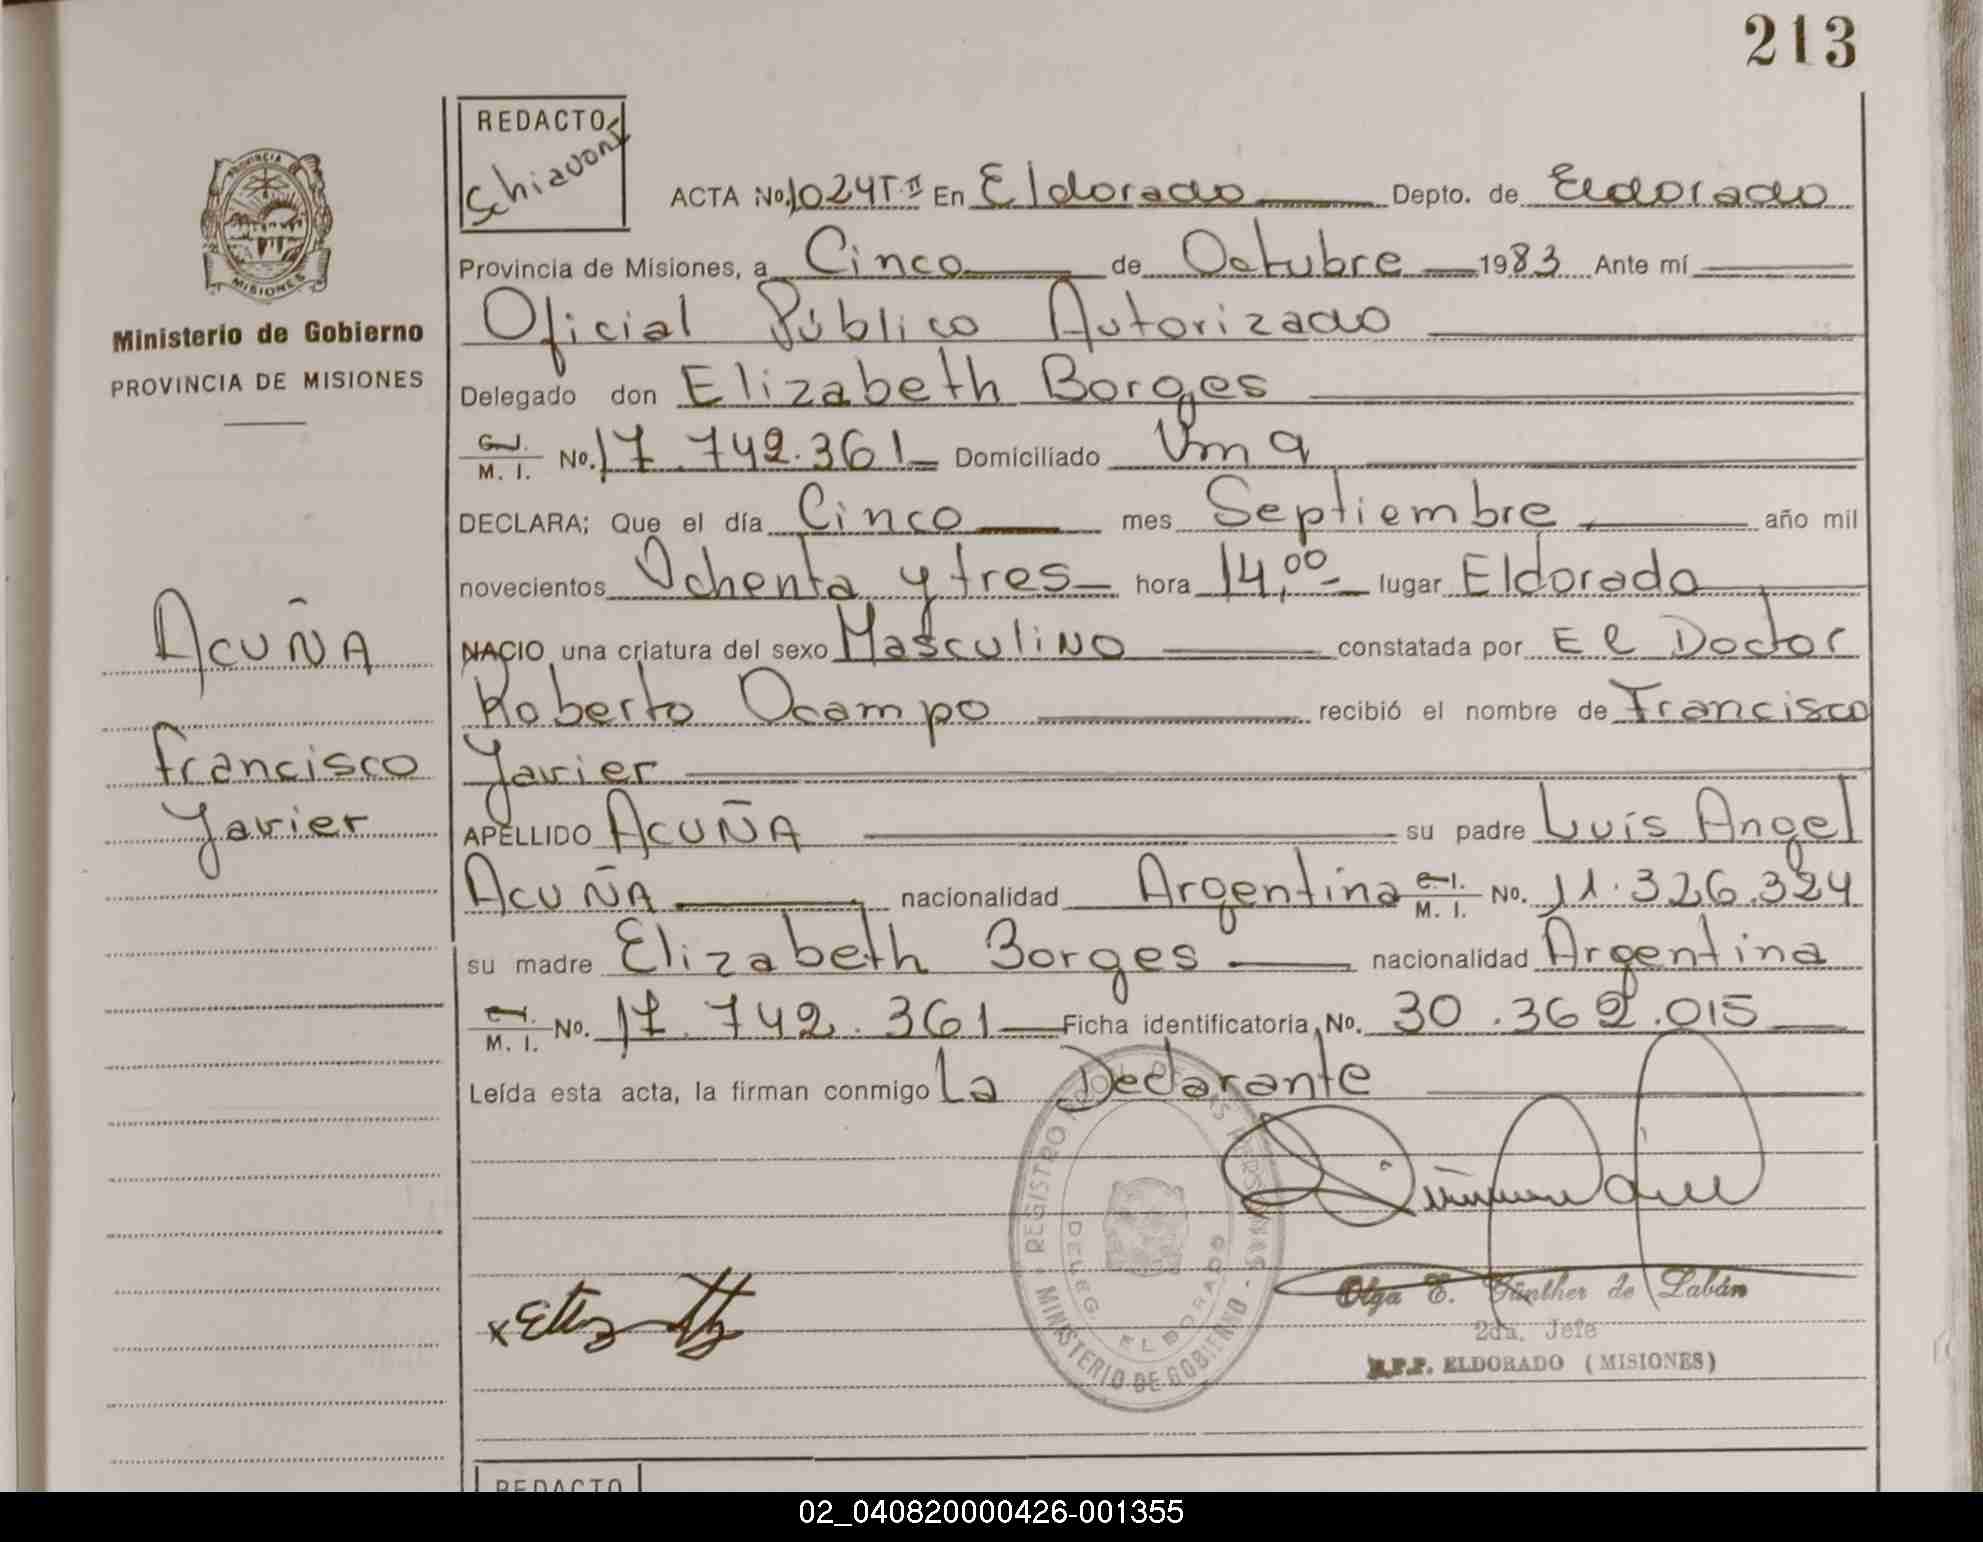 213
REDACTO
Schiavoni
ACTA No. 1024 T.II En Eldorado Depto. de Eldorado
Provincia de Misiones, a Cinco de Octubre 1983 Ante mí
Oficial Público Autorizado
Delegado don Elizabeth Borges
M. I. No. 17.742.361 Domiciliado Km 9
DECLARA; Que el día Cinco mes Septiembre año mil
novecientos Ochenta y tres hora 14,00 lugar Eldorado
NACIO una criatura del sexo Masculino constatada por El Doctor
Roberto Ocampo recibió el nombre de Francisco
Javier
APELLIDO Acuña su padre Luis Angel
Acuña nacionalidad Argentina M. I. No. 11.326.324
su madre Elizabeth Borges nacionalidad Argentina
M. I. No. 17.742.361 Ficha identificatoria No. 30.362.015
Leída esta acta, la firman conmigo La Declarante
PROVINCIA
MISIONES
Ministerio de Gobierno
PROVINCIA DE MISIONES
Acuña
Francisco
Javier
REGISTRO PROV. DE LAS PERSONAS
MINISTERIO DE GOBIERNO
DELEG. ELDORADO
Olga E. Günther de Labán
2da. Jefe
R.P.P. ELDORADO (MISIONES)
REDACTO
02_040820000426-001355